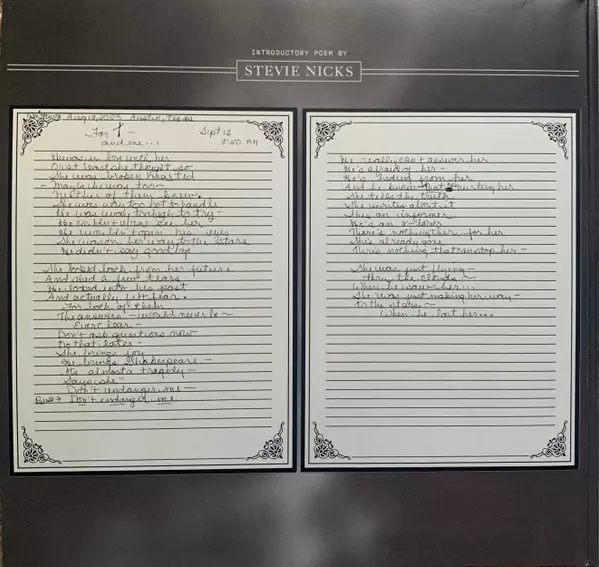 INTRODUCTORY POEM BY
STEVIE NICKS
Written Aug 13, 2023 Austin, Texas
For T —
and me...
Sept 12
8:50 PM
He was in love with her
Or at least she thought so
She was broken hearted
— Maybe he was too —
Neither of them knew.
She was way too hot to handle
He was way too high to try —
He couldn't even see her
He wouldn't open his eyes
She was on her way to the stars
He didn't say goodbye
She looked back from her future
And shed a few tears
He looked into his past
And actually felt fear.
For both of them
The answers — would never be —
Ever clear —
Don't ask questions now
Do that later —
She brings joy
He brings Shakespeare —
It's almost a tragedy —
Says she "
Don't endanger me —
Don't endanger me
He really can't answer her
He's afraid of her —
He's hiding from her
And he knows that he's hurting her
She tells the truth
She writes about it
She's an informer
He's an X-lover
There's nothing there for her
She's already gone
There's nothing that can stop her —
She was just flying —
thru the clouds —
When he saw her...
She was just making her way —
To the stars —
When he lost her...